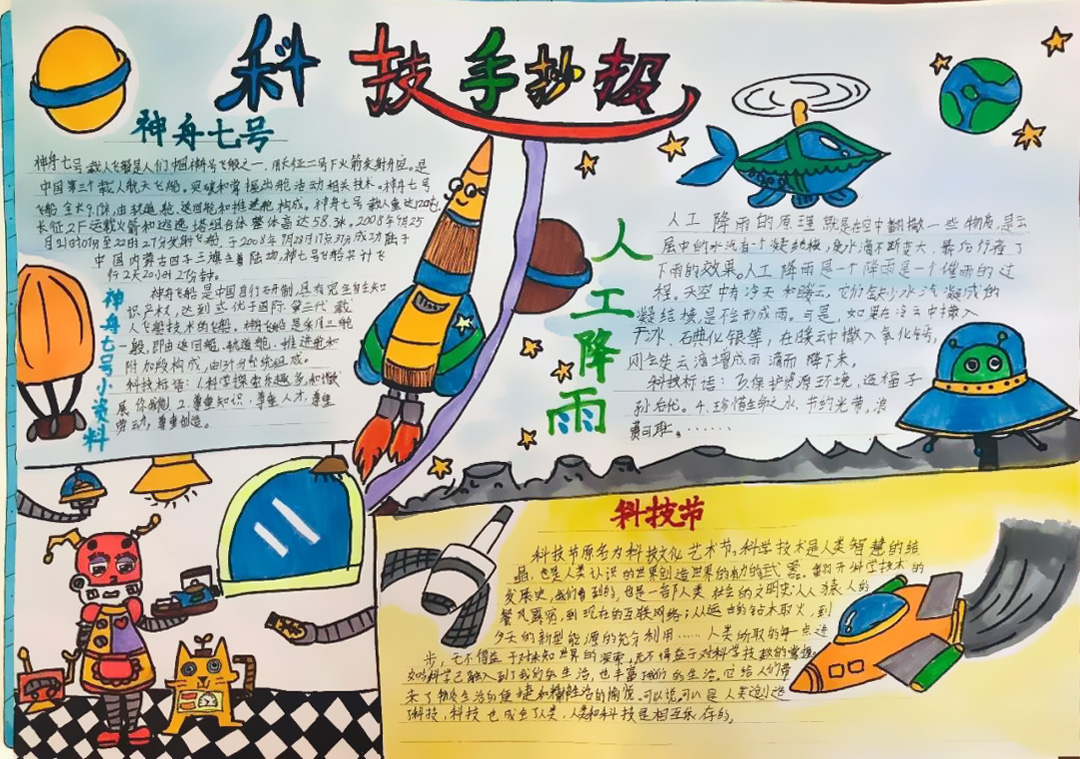 科技手抄报
神舟七号
神舟七号载人飞船是人们中国神舟号飞船之一,用长征二号F火箭发射升空。是
中国第三个载人航天飞船。突破和掌握出舱活动相关技术。神舟七号
飞船全长9.19米,由轨道舱、返回舱和推进舱构成。神舟七号载人重达12吨。
长征2F运载火箭和逃逸塔组合体整体高达58.3米。2008年9月25
日21时10分
发射飞船,于2008年9月28日17点37分成功着陆于
中国内蒙古四子王旗主着陆场,神七号飞船共计飞
行2天20小时27分钟。
神舟七号小资料
神舟飞船是中国自行研制,具有完全自主知
识产权,达到或优于国际第三代载
人飞船技术的飞船。神舟飞船是采用三舱
一段,即由返回舱、轨道舱、推进舱和
附加段构成,由13个分系统组成。
科技标语:1.科学探索乐趣多,
2.尊重知识、尊重人才、尊重
劳动,尊重创造。
人工降雨
人工降雨的原理就是在空中翻撒一些物质,是云
下雨的效果。人工降雨是一个降雨是一个催雨的过
程。天空中有冷天和暖云,它们缺少水汽凝成的
凝结核是不能形成雨。可是,如果在冷云中撒入
干冰、碘化银等,在暖云中撒入氯化钙,
则会使云滴增成雨滴而降下来。
科技标语:3.保护资源环境,造福子
孙后代。4.珍惜生命之水,节约光荣,浪
费可耻。……
科技节
科技节原名为科技文化艺术节。科学技术是人类智慧的结
晶,也是人类认识的世界创造世界的有力的武器。翻开科学技术的
发展史,我们看到的,也是一部人类社会的文明史:从人猿人的
餐风露宿,到现在的互联网络;从远古的钻木取火,到
今天的新型能源的充分利用……人类所取的每一点进
步,无不得益于对未知世界的探索,无不得益于对科学技术的掌握。
如今科学已融入到了我们的生活,也丰富了我们的生活。它给人们带
来了物质生活的便捷和精神生活的愉悦。可以说,可以是人类创造
了科技,科技也成全了人类,人类和科技是相互依存的。